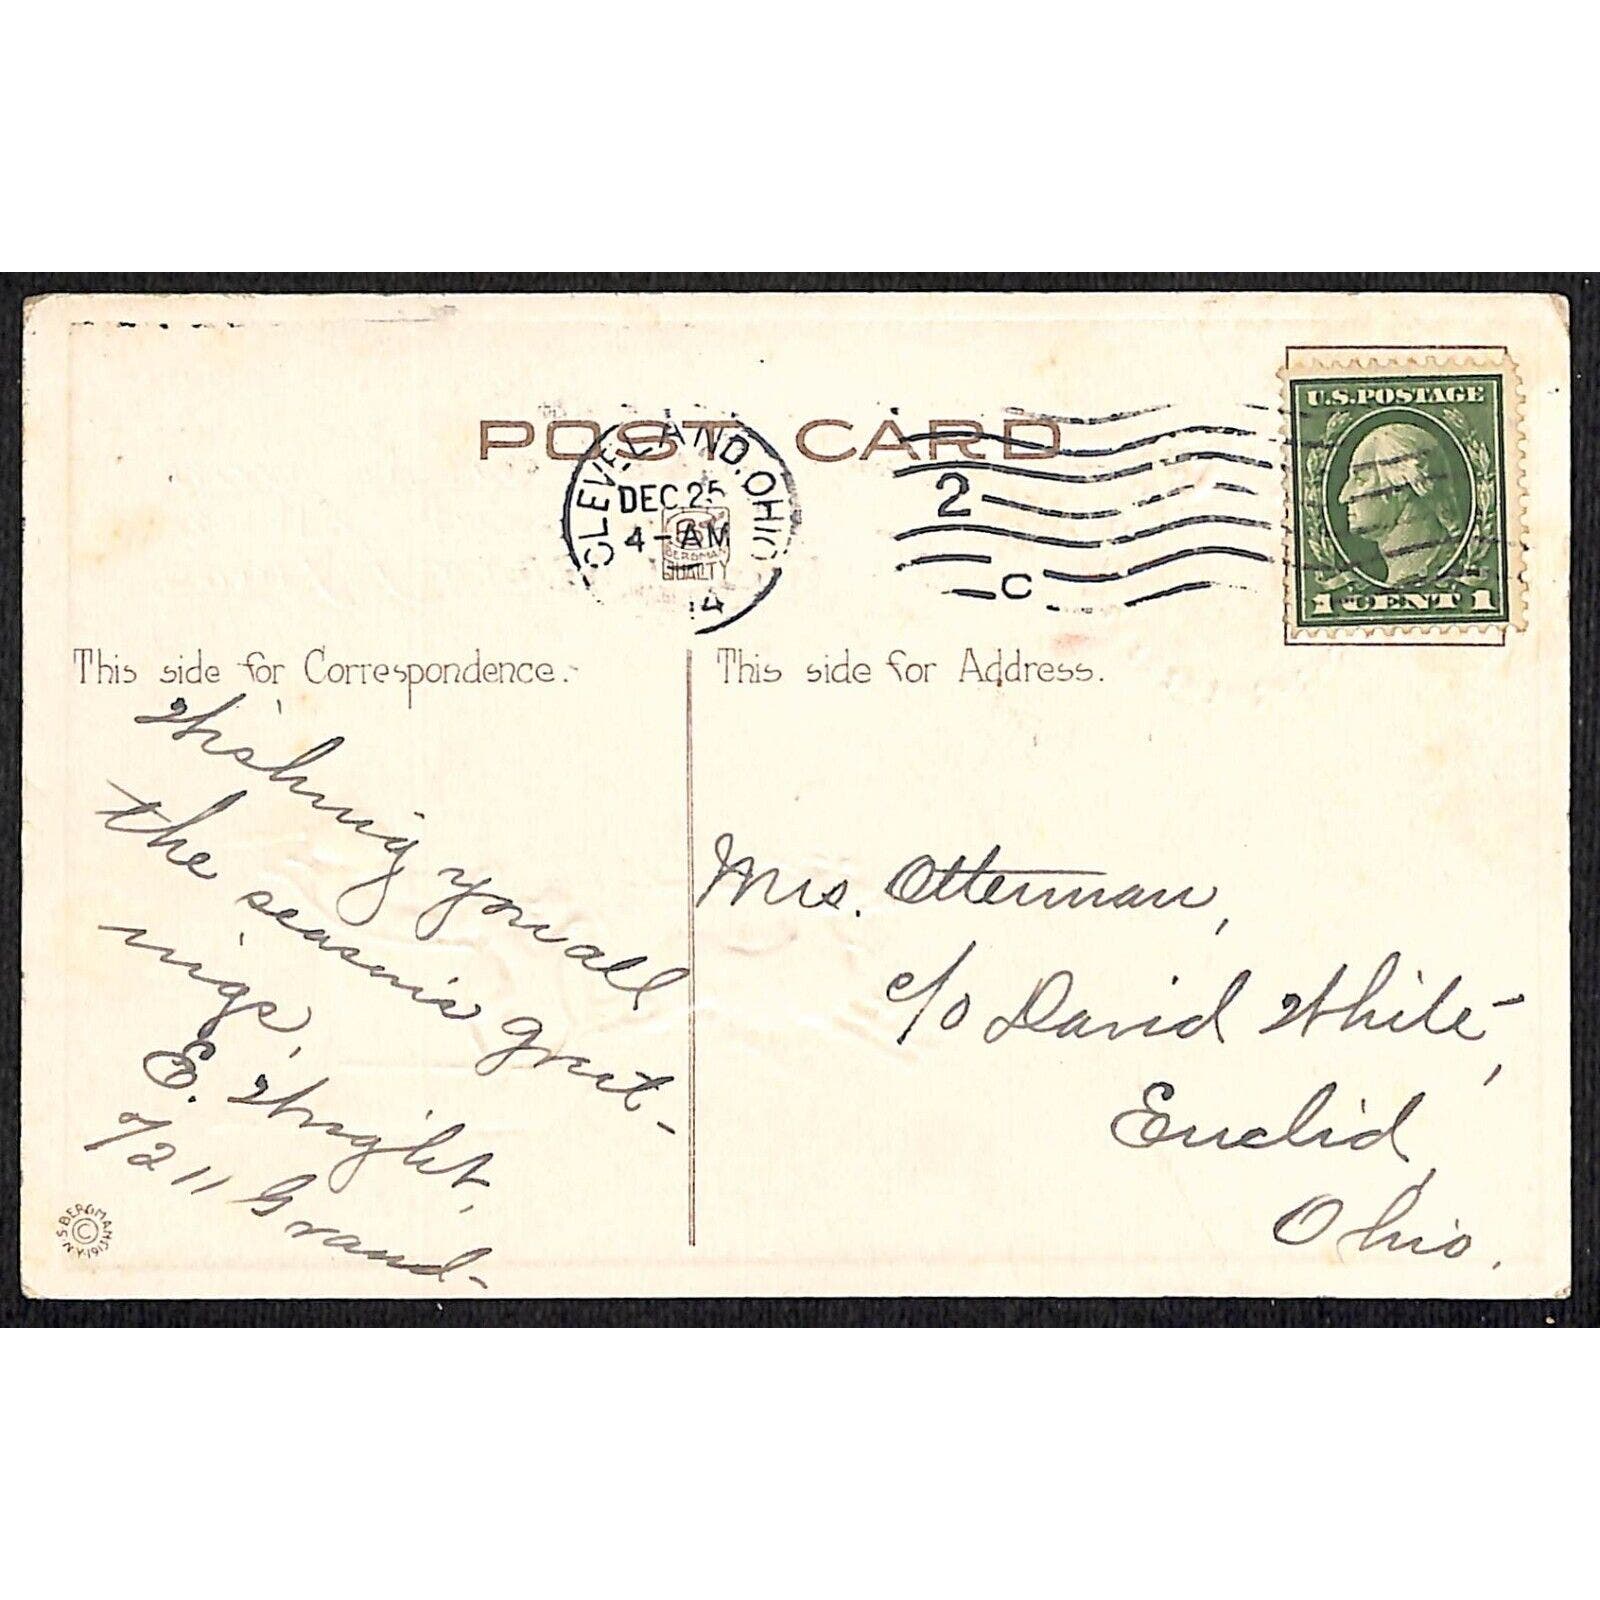 POST CARD
CLEVELAND, OHIO
DEC 25
4-AM
14
2
C
U.S. POSTAGE
1 CENT 1
BERGMAN
QUALITY
This side for Correspondence.
Wishing you all
the season's greet-
ings,
E. Wright,
7211 Grand-
S. BERGMAN © N.Y. 1913
This side for Address.
Mrs. Otterman,
c/o David White,
Euclid,
Ohio.